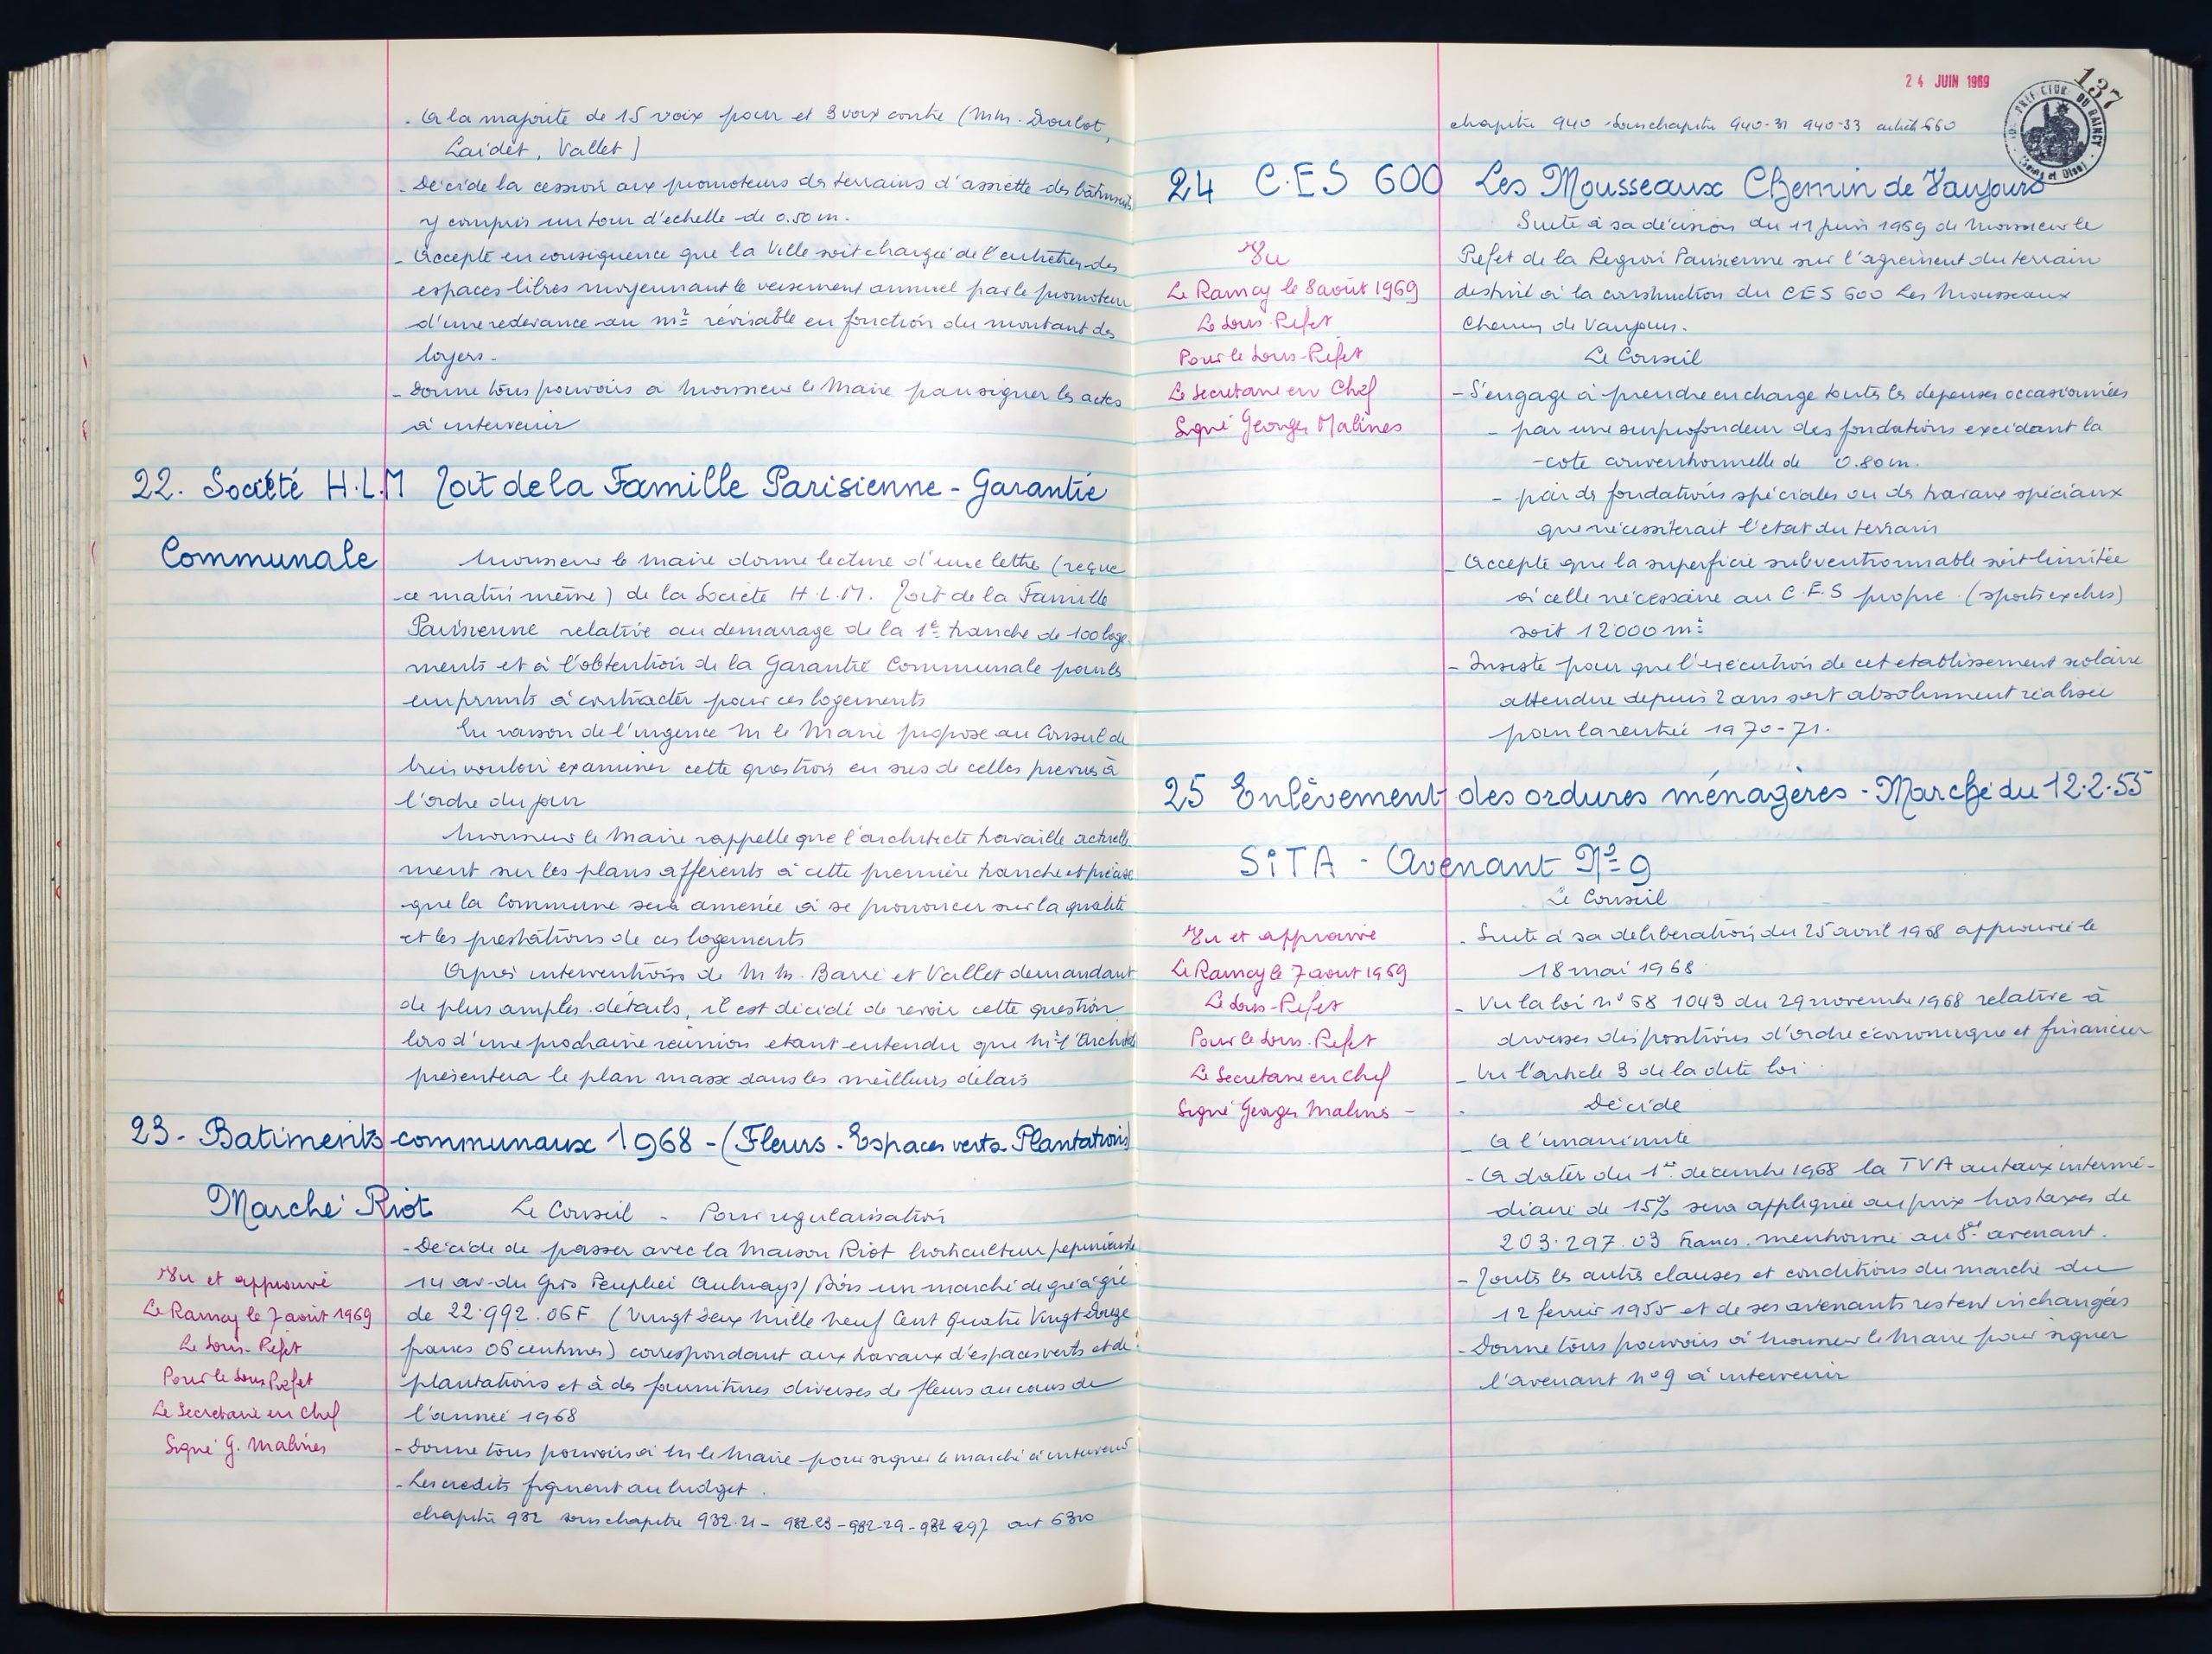 - A la majorité de 15 voix pour et 3 voix contre (MM. Droulot,
Laidet, Vallet)
- Décide la cession aux promoteurs des terrains d'assiette des bâtiments
y compris un tour d'échelle de 0.50 m.
- Accepte en conséquence que la Ville soit chargée de l'entretien des
espaces libres moyennant le versement annuel par le promoteur
d'une redevance au m² révisable en fonction du montant des
loyers.
- Donne tous pouvoirs à Monsieur le Maire pour signer les actes
à intervenir
22. Société H.L.M Toit de la Famille Parisienne - Garantie
Communale
Monsieur le Maire donne lecture d'une lettre (reçue
ce matin même) de la Société H.L.M. Toit de la Famille
Parisienne relative au démarrage de la 1e tranche de 100 loge
ments et à l'obtention de la Garantie Communale pour les
emprunts à contracter pour ces logements
En raison de l'urgence M le Maire propose au Conseil de
bien vouloir examiner cette question en sus de celles prévues à
l'ordre du jour
Monsieur le Maire rappelle que l'architecte travaille actuelle
ment sur les plans afférents à cette première tranche et précise
que la Commune sera amenée à se prononcer sur la qualité
et les prestations de ces logements
Après interventions de MM. Barré et Vallet demandant
de plus amples détails, il est décidé de revoir cette question
lors d'une prochaine réunion étant entendu que Mr l'Architecte
présentera le plan masse dans les meilleurs délais
23. Batiments communaux 1968 - (Fleurs - Espaces verts - Plantations)
Marché Riot
Le Conseil - Pour regularisation
- Décide de passer avec la Maison Riot horticulteur pépiniériste
14 av. du Gros Peuplier Aulnay s/ Bois un marché de gré à gré
de 22.992.06 F (Vingt deux mille neuf Cent Quatre Vingt Douze
francs 06 centimes) correspondant aux travaux d'espaces verts et de
plantations et à des fournitures diverses de fleurs au cours de
l'année 1968
- Donne tous pouvoirs à M le Maire pour signer le marché à intervenir
- Les crédits figurent au budget.
chapitre 932 sous chapitre 932.21 - 932.23 - 932.29 - 932 297 art 6310
Vu et approuvé
Le Raincy le 7 août 1969
Le Sous-Préfet
Pour le Sous Préfet
Le Secrétaire en Chef
Signé G. Malines
24 JUIN 1969
137
chapitre 940 Sous chapitre 940-31 940-33 article 660
24 C.E.S 600 Les Mousseaux Chemin de Vaujours
Suite à sa décision du 11 juin 1969 de Monsieur le
Préfet de la Région Parisienne sur l'agrément du terrain
destiné à la construction du CES 600 Les Mousseaux
Chemin de Vaujours.
Le Conseil
- S'engage à prendre en charge toutes les dépenses occasionnées
- par une surprofondeur des fondations excédant la
cote conventionnelle de 0.80 m.
- par des fondations spéciales ou des travaux spéciaux
que nécessiterait l'état du terrain
- Accepte que la superficie subventionnable soit limitée
à celle nécessaire au C.E.S propre (sports exclus)
soit 12000 m²
- Insiste pour que l'exécution de cet établissement scolaire
attendue depuis 2 ans soit absolument réalisée
pour la rentrée 1970-71.
Vu
Le Raincy le 8 août 1969
Le Sous-Préfet
Pour le Sous-Préfet
Le Secrétaire en Chef
Signé Georges Malines
25 Enlèvement des ordures ménagères - Marché du 12.2.55
SITA - Avenant No 9
Le Conseil
- Suite à sa délibération du 25 avril 1968 approuvée le
18 mai 1968
- Vu la loi n° 68 1043 du 29 novembre 1968 relative à
diverses dispositions d'ordre économique et financier
- Vu l'article 3 de la dite loi
Décide
- A l'unanimité
- A dater du 1er décembre 1968 la TVA au taux intermé-
diaire de 15% sera appliquée au prix hors taxes de
203.297.03 Francs mentionné au 8e avenant.
- Toutes les autres clauses et conditions du marché du
12 février 1955 et de ses avenants restent inchangées
- Donne tous pouvoirs à Monsieur le Maire pour signer
l'avenant n° 9 à intervenir
Vu et approuvé
Le Raincy le 7 août 1969
Le Sous-Préfet
Pour le Sous-Préfet
Le Secrétaire en Chef
Signé Georges Malines -